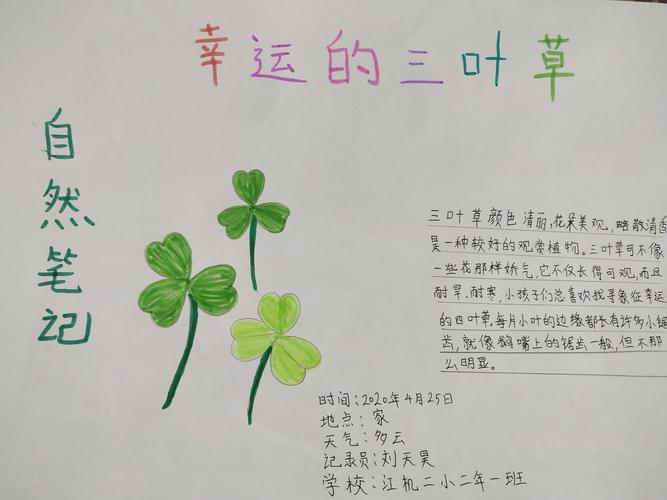 幸运的三叶草
自然笔记
三叶草颜色清丽,花朵美观,略散清香
是一种较好的观赏植物。三叶草可不像
一些花那样娇气,它不仅长得可观,而且
耐旱、耐寒,小孩子们总喜欢找寻象征幸运
的四叶草,每片小叶的边缘都长有许多小锯
齿,就像鹅嘴上的锯齿一般,但不那
么明显。
时间:2020年4月25日
地点:家
天气:多云
记录员:刘天昊
学校:江机二小二年一班